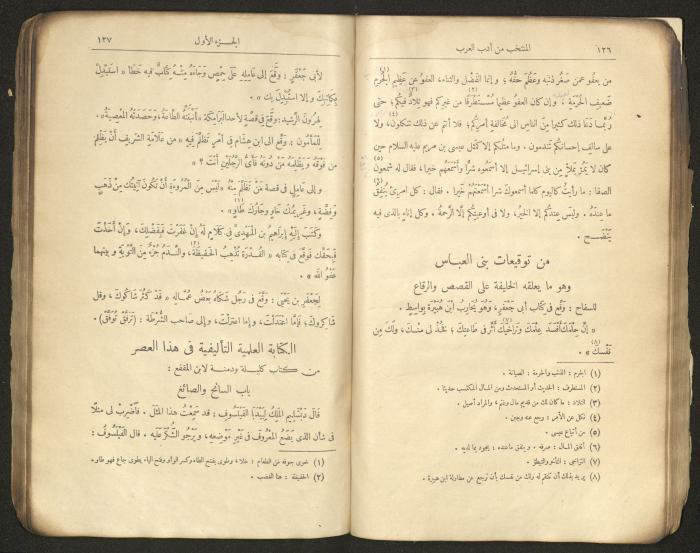 ١٣٦
المنتخب من أدب العرب
من يعفو عمن صغر ذنبه وعظم حقه؛ وإنما الفضل والثناء، العفو عن عظيم الجُرم
ضعيف الحُرمة (١)، وإن كان العفو عظيما مُستطرَفا (٢) من غيركم فهو تِلاد (٣) فيكم؛ حتى
ربما دعا ذلك كثيرا من الناس الى مخالفة أمركم؛ فلا أنتم عن ذلك تنكلون، ولا (٤)
على سالف إحسانكم تندمون. وما مثلكم إلا كمثل عيسى بن مريم عليه السلام حين
كان لا يمر بملإ من بنى إسرائيل إلا أسمعوه شرا وأسمعهم خيرا، فقال له شمعون (٥)
الصفا: ما رأيت كاليوم كلما أسمعوك شرا أسمعتهم خيرا. فقال: كل امرئ ينفق (٦)
ما عنده. وليس عندكم إلا الخير، ولا فى أوعيتكم إلا الرحمة. وكل إناء بالذى فيه
ينضح.
من توقيعات بنى العباس
وهو ما يعلقه الخليفة على القصص والرقاع
للسفاح: وقّع فى كتاب أبى جعفر، وهو يحارب ابن هُبيرة بواسط.
« إن حلمك أفسد علمك وتراخيك (٧) أثر فى طاعتك؛ فخذ لى منك، ولك من
نفسك (٨) ».
(١) الجرم: الذنب والحرمة: الصيانة.
(٢) المستطرف: الحديث أو المستحدث ومن المال المكتسب حديثا.
(٣) التلاد: ما كان لك من قديم مال ونعم، والمراد أصيل.
(٤) نكل عن الأمر: رجع عنه وجبن.
(٥) من أتباع عيسى.
(٦) أنفق المال: صرفه. وينفق ما عنده: يجود بما لديه.
(٧) التراخى: التأخر والتبطؤ.
(٨) يريد بذلك أن ننتقم له وله من نفسك بأن ترجع عن مطاولة ابن هبيرة.
الجزء الأول
١٣٧
لأبى جعفر: وقّع إلى عامله على حمص وجاءه منه كتاب فيه خطأ « استبدل
بكاتبك وإلا استُبدل بك ».
لهرون الرشيد: وقّع فى قصة لأحد البرامكة « أنبتته الطاعة، وحصدته المعصية ».
للمأمون: وقّع الى ابن هشام فى أمر تظلم فيه « من علامة الشريف أن يظلم
من فوقه ويظلمه من دونه فأى الرجلين أنت؟ »
وإلى عامل فى قصة من تظلم منه « ليس من المروءة أن تكون آنيتك من ذهب
وفضة، وغريمك خاوٍ وجارك طاوٍ (١) ».
وكتب إليه إبراهيم بن المهدىّ فى كلام له إن غفرت فبفضلك، وإن أخذت
فبحقك فوقع فى كتابه « القدرة تُذهب الحفيظة (٢)، والندم جزء من التوبة وبينهما
عفو الله ».
لجعفر بن يحيى: وقّع فى رجل شكاه بعض عماله « قد كثر شاكوك، وقل
شاكروك؛ فإما اعتدلت، وإما اعتزلت، وإلى صاحب الشرطة: (ترفّق تُوفّق).
الكتابة العلمية التأليفية فى هذا العصر
من كتاب كليلة ودمنة لابن المقفع:
باب السائح والصائغ
قال دبشليم الملك لبيدبا الفيلسوف: قد سمعت هذا المثل. فأضرب لى مثلا
فى شأن الذى يضع المعروف فى غير موضعه، ويرجو الشكر عليه. قال الفيلسوف:
(١) خوى جوفه من الطعام: خلا، وطوى بفتح الطاء وكسر الواو وفتح الياء يطوى جاع فهو طاو.
(٢) الحفيظة: هنا الغضب.